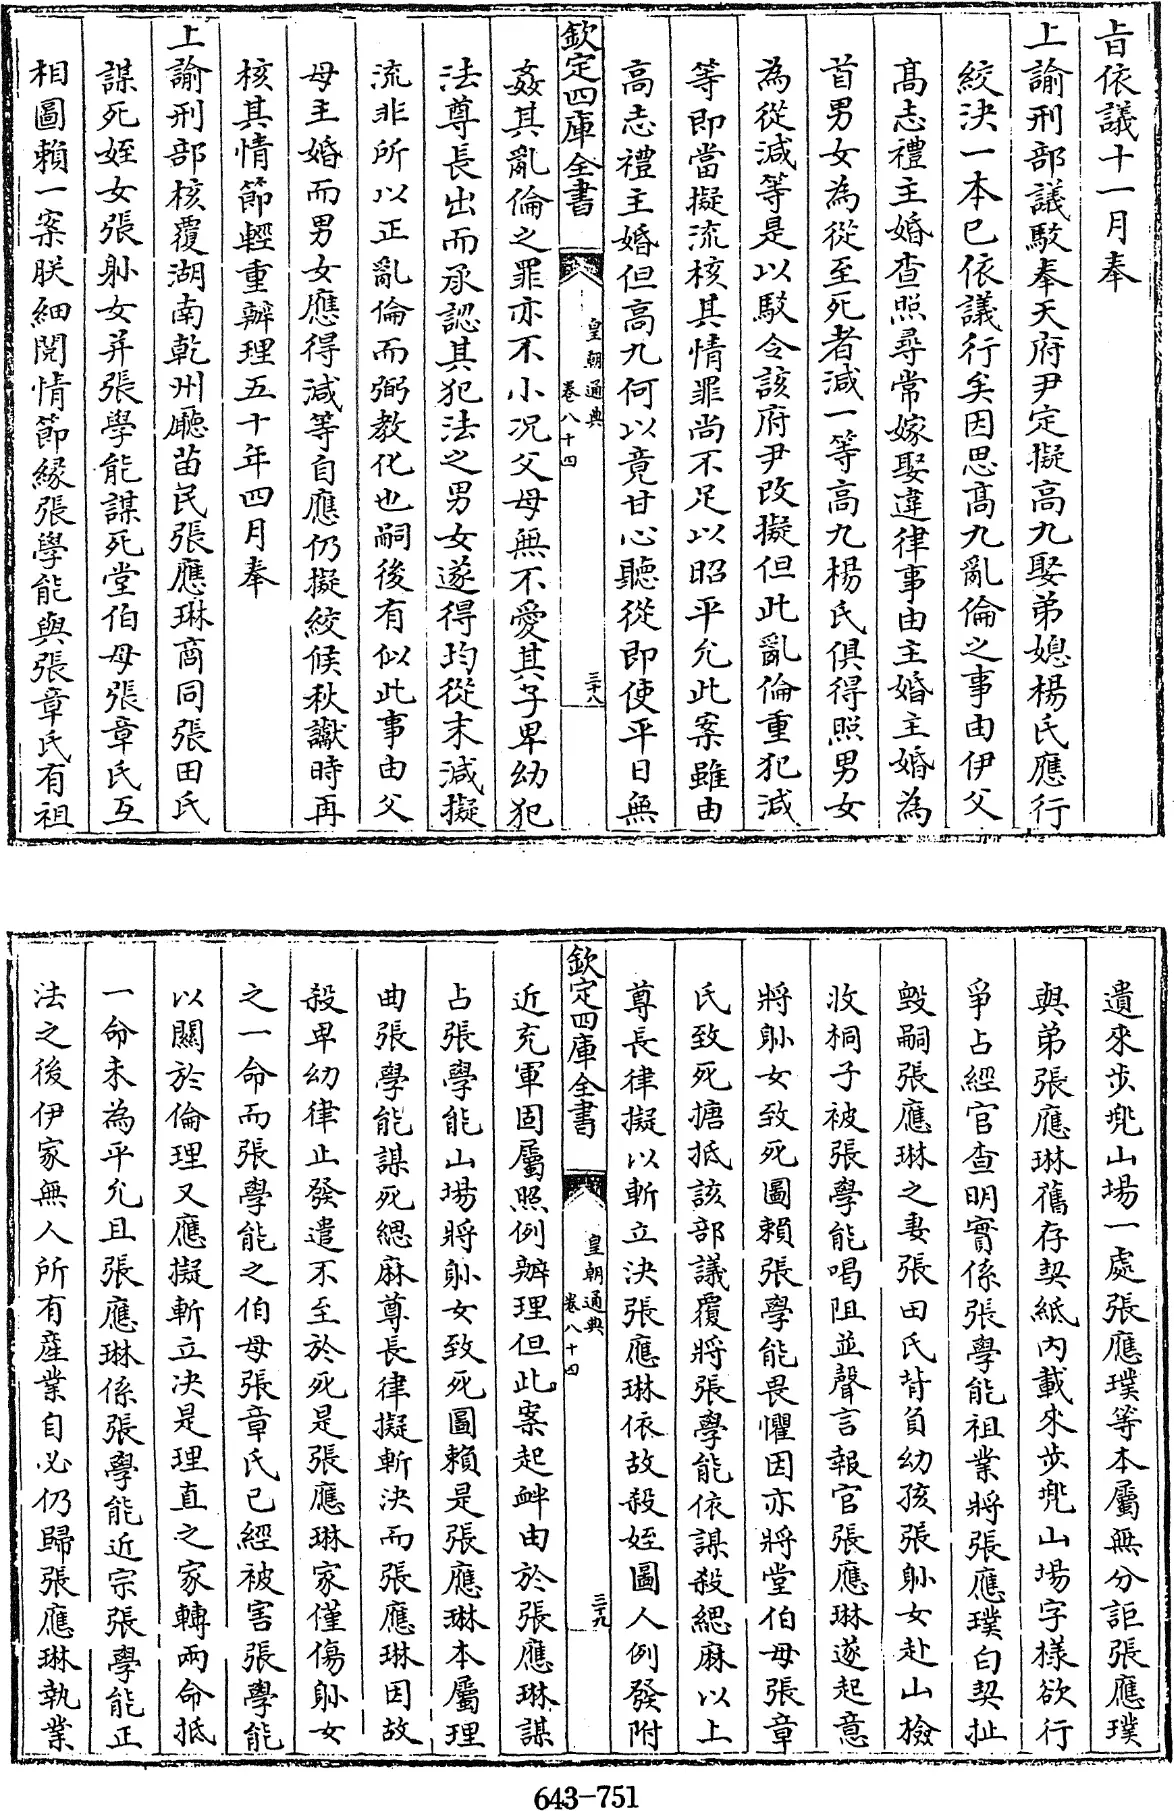 旨依議十一月奉
上諭刑部議駁奉天府尹定擬高九娶弟媳楊氏應行
絞決一本已依議行矣因思高九亂倫之事由伊父
高志禮主婚查照尋常嫁娶違律事由主婚主婚為
首男女為從至死者減一等高九楊氏俱得照男女
為從減等是以駁令該府尹改擬但此亂倫重犯減
等即當擬流核其情罪尚不足以昭平允此案雖由
高志禮主婚但高九何以竟甘心聽從即使平日無
欽定四庫全書
皇朝通典
卷八十四
三十八
姦其亂倫之罪亦不小况父母無不愛其子卑幼犯
法尊長出而承認其犯法之男女遂得均從末減擬
流非所以正亂倫而弼教化也嗣後有似此事由父
母主婚而男女應得減等自應仍擬絞候秋讞時再
核其情節輕重辦理五十年四月奉
上諭刑部核覆湖南乾州廳苗民張應琳商同張田氏
謀死姪女張躳女并張學能謀死堂伯母張章氏互
相圖賴一案朕細閱情節緣張學能與張章氏有祖
遺來步兠山場一處張應璞等本屬無分詎張應璞
與弟張應琳舊存契紙内載來步兠山場字樣欲行
爭占經官查明實係張學能祖業將張應璞白契扯
毀嗣張應琳之妻張田氏背負幼孩張躳女赴山撿
收桐子被張學能喝阻並聲言報官張應琳遂起意
將躳女致死圖賴張學能畏懼因亦將堂伯母張章
氏致死搪抵該部議覆將張學能依謀殺緦麻以上
尊長律擬以斬立決張應琳依故殺姪圖人例發附
欽定四庫全書
皇朝通典
卷八十四
三十九
近充軍固屬照例辦理但此案起衅由於張應琳謀
占張學能山場將躳女致死圖賴是張應琳本屬理
曲張學能謀死緦麻尊長律擬斬決而張應琳因故
殺卑幼律止發遣不至於死是張應琳家僅傷躳女
之一命而張學能之伯母張章氏已經被害張學能
以關於倫理又應擬斬立决是理直之家轉兩命抵
一命未為平允且張應琳係張學能近宗張學能正
法之後伊家無人所有産業自必仍歸張應琳執業
643-751